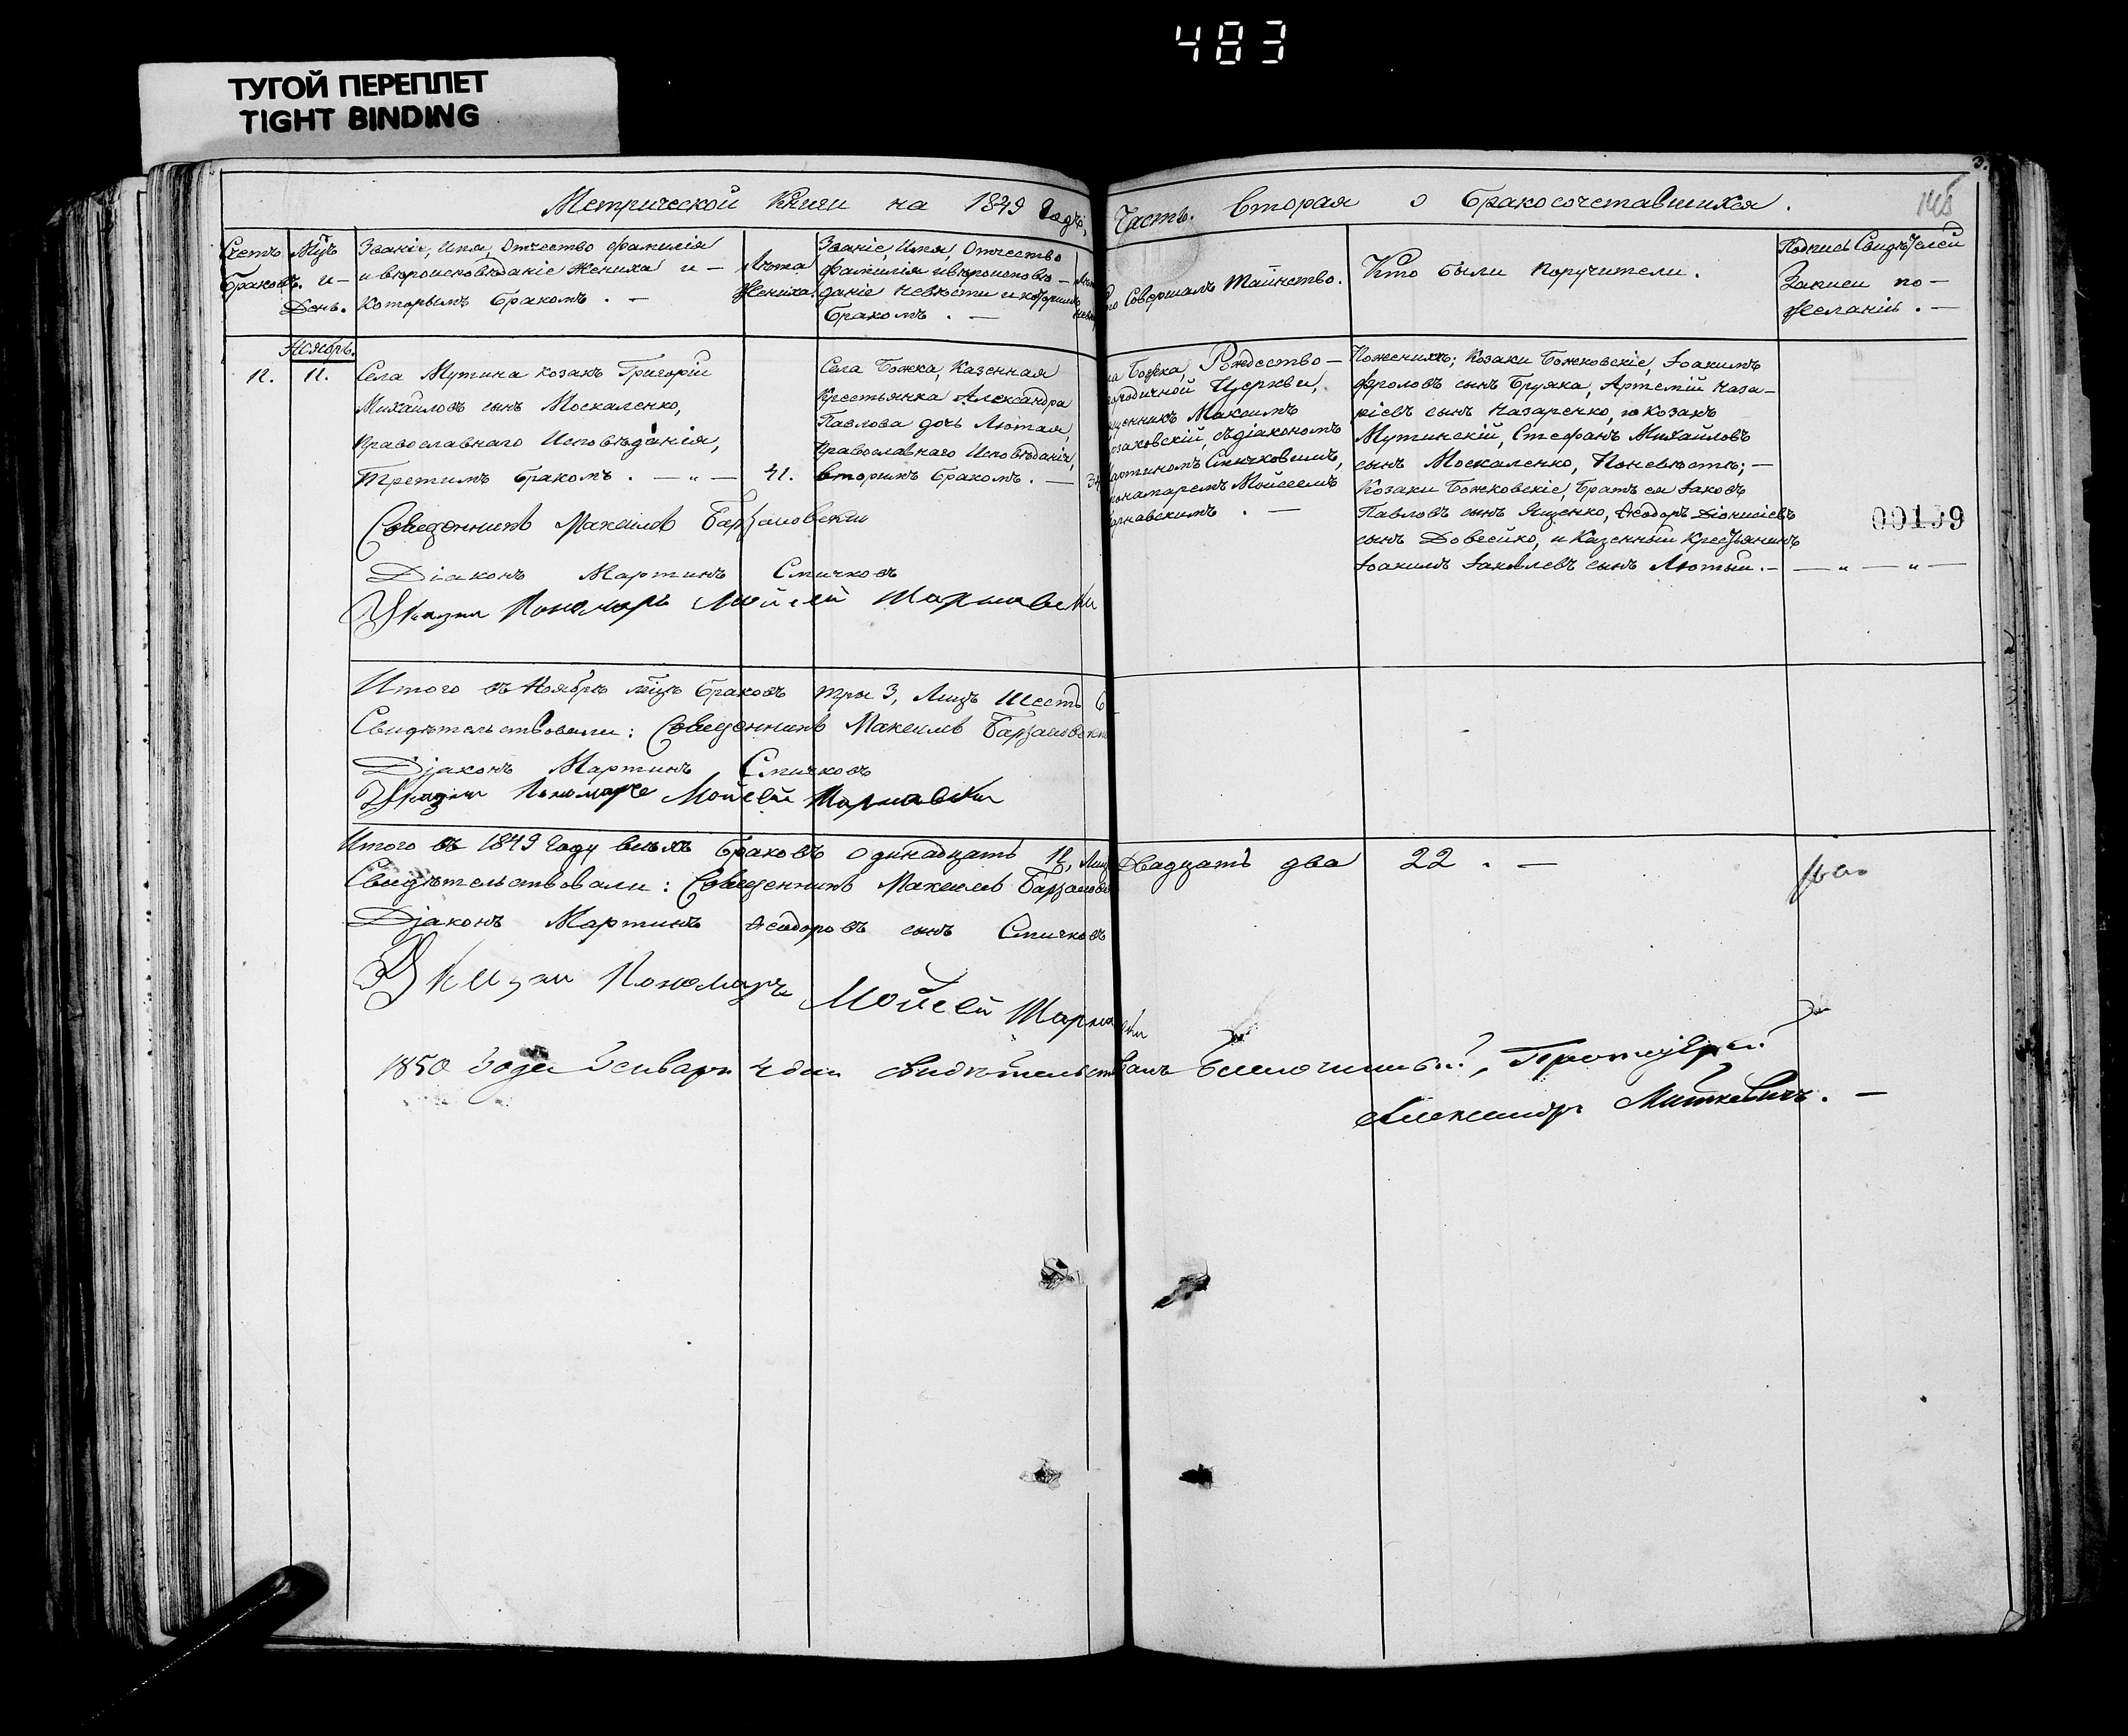 483
ТУГОЙ ПЕРЕПЛЕТ
TIGHT BINDING
Метрической Книги на 1849 Годъ, Часть Вторая о Бракосочетавшихся.
Счетъ Браковъ.
Мцъ и День.
Званіе, Имя, Отчество Фамилія
и вѣроисповѣданіе Жениха и
Которымъ бракомъ.
Лѣта Жениха.
Званіе, Имя, Отчество
Фамилія и вѣроисповѣ-
даніе Невѣсты и которымъ
бракомъ.
Совершалъ Таинство.
Кто были Поручители.
Подпись Свидѣтелей
Записи по
желанію.
Ноябрь.
11.
Села Мутина козакъ Григорій
Михайловъ сынъ Москаленко,
Православнаго Исповѣданія,
Третимъ бракомъ.
41.
Села Божка, Казенная
Крестьянка Александра
Павлова дочь Лютая,
Православнаго Исповѣданія,
Вторымъ бракомъ.
Божка, Рждество-
городичной Церкви,
щенникъ Максимъ
съ діакономъ
Мартиномъ Смичковимъ,
пономаремъ Мойсеемъ
По женихѣ; Козаки Божковскіе, Іоакимъ
Фроловъ сынъ Бруяка, Артемій Наза-
ріевъ сынъ Назаренко, и Козакъ
Мутинскій, Стефанъ Михайловъ
сынъ Москаленко, По невѣстѣ;
Козаки Божковскіе, Братъ ея Іаковъ
Павловъ сынъ Яценко, Ѳеодоръ Діонисіевъ
сынъ Довгейко, и Казенный Крестьянинъ
Іоакимъ Іаковлевъ сынъ Лютый.
00139
Священникъ Максимъ
Діаконъ Мартинъ Смичковъ
Пономарь Мойсей
Итого въ Ноябрѣ мцѣ браковъ три 3, Лицъ Шесть 6
Свидѣтельствовали: Священникъ Максимъ
Діаконъ Мартинъ Смичковъ
Пономарь Мойсей
Итого въ 1849 Году всѣхъ браковъ одинадцать 11, Лицъ Двадцать два 22.
Свидѣтельствовали: Священникъ Максимъ
Діаконъ Мартинъ Ѳеодоровъ сынъ Смичковъ
Пономарь Мойсей
1850 Года Января 4 дня свидѣтельствовалъ Благочинный, Протоіерей
Александръ Миткевичъ.